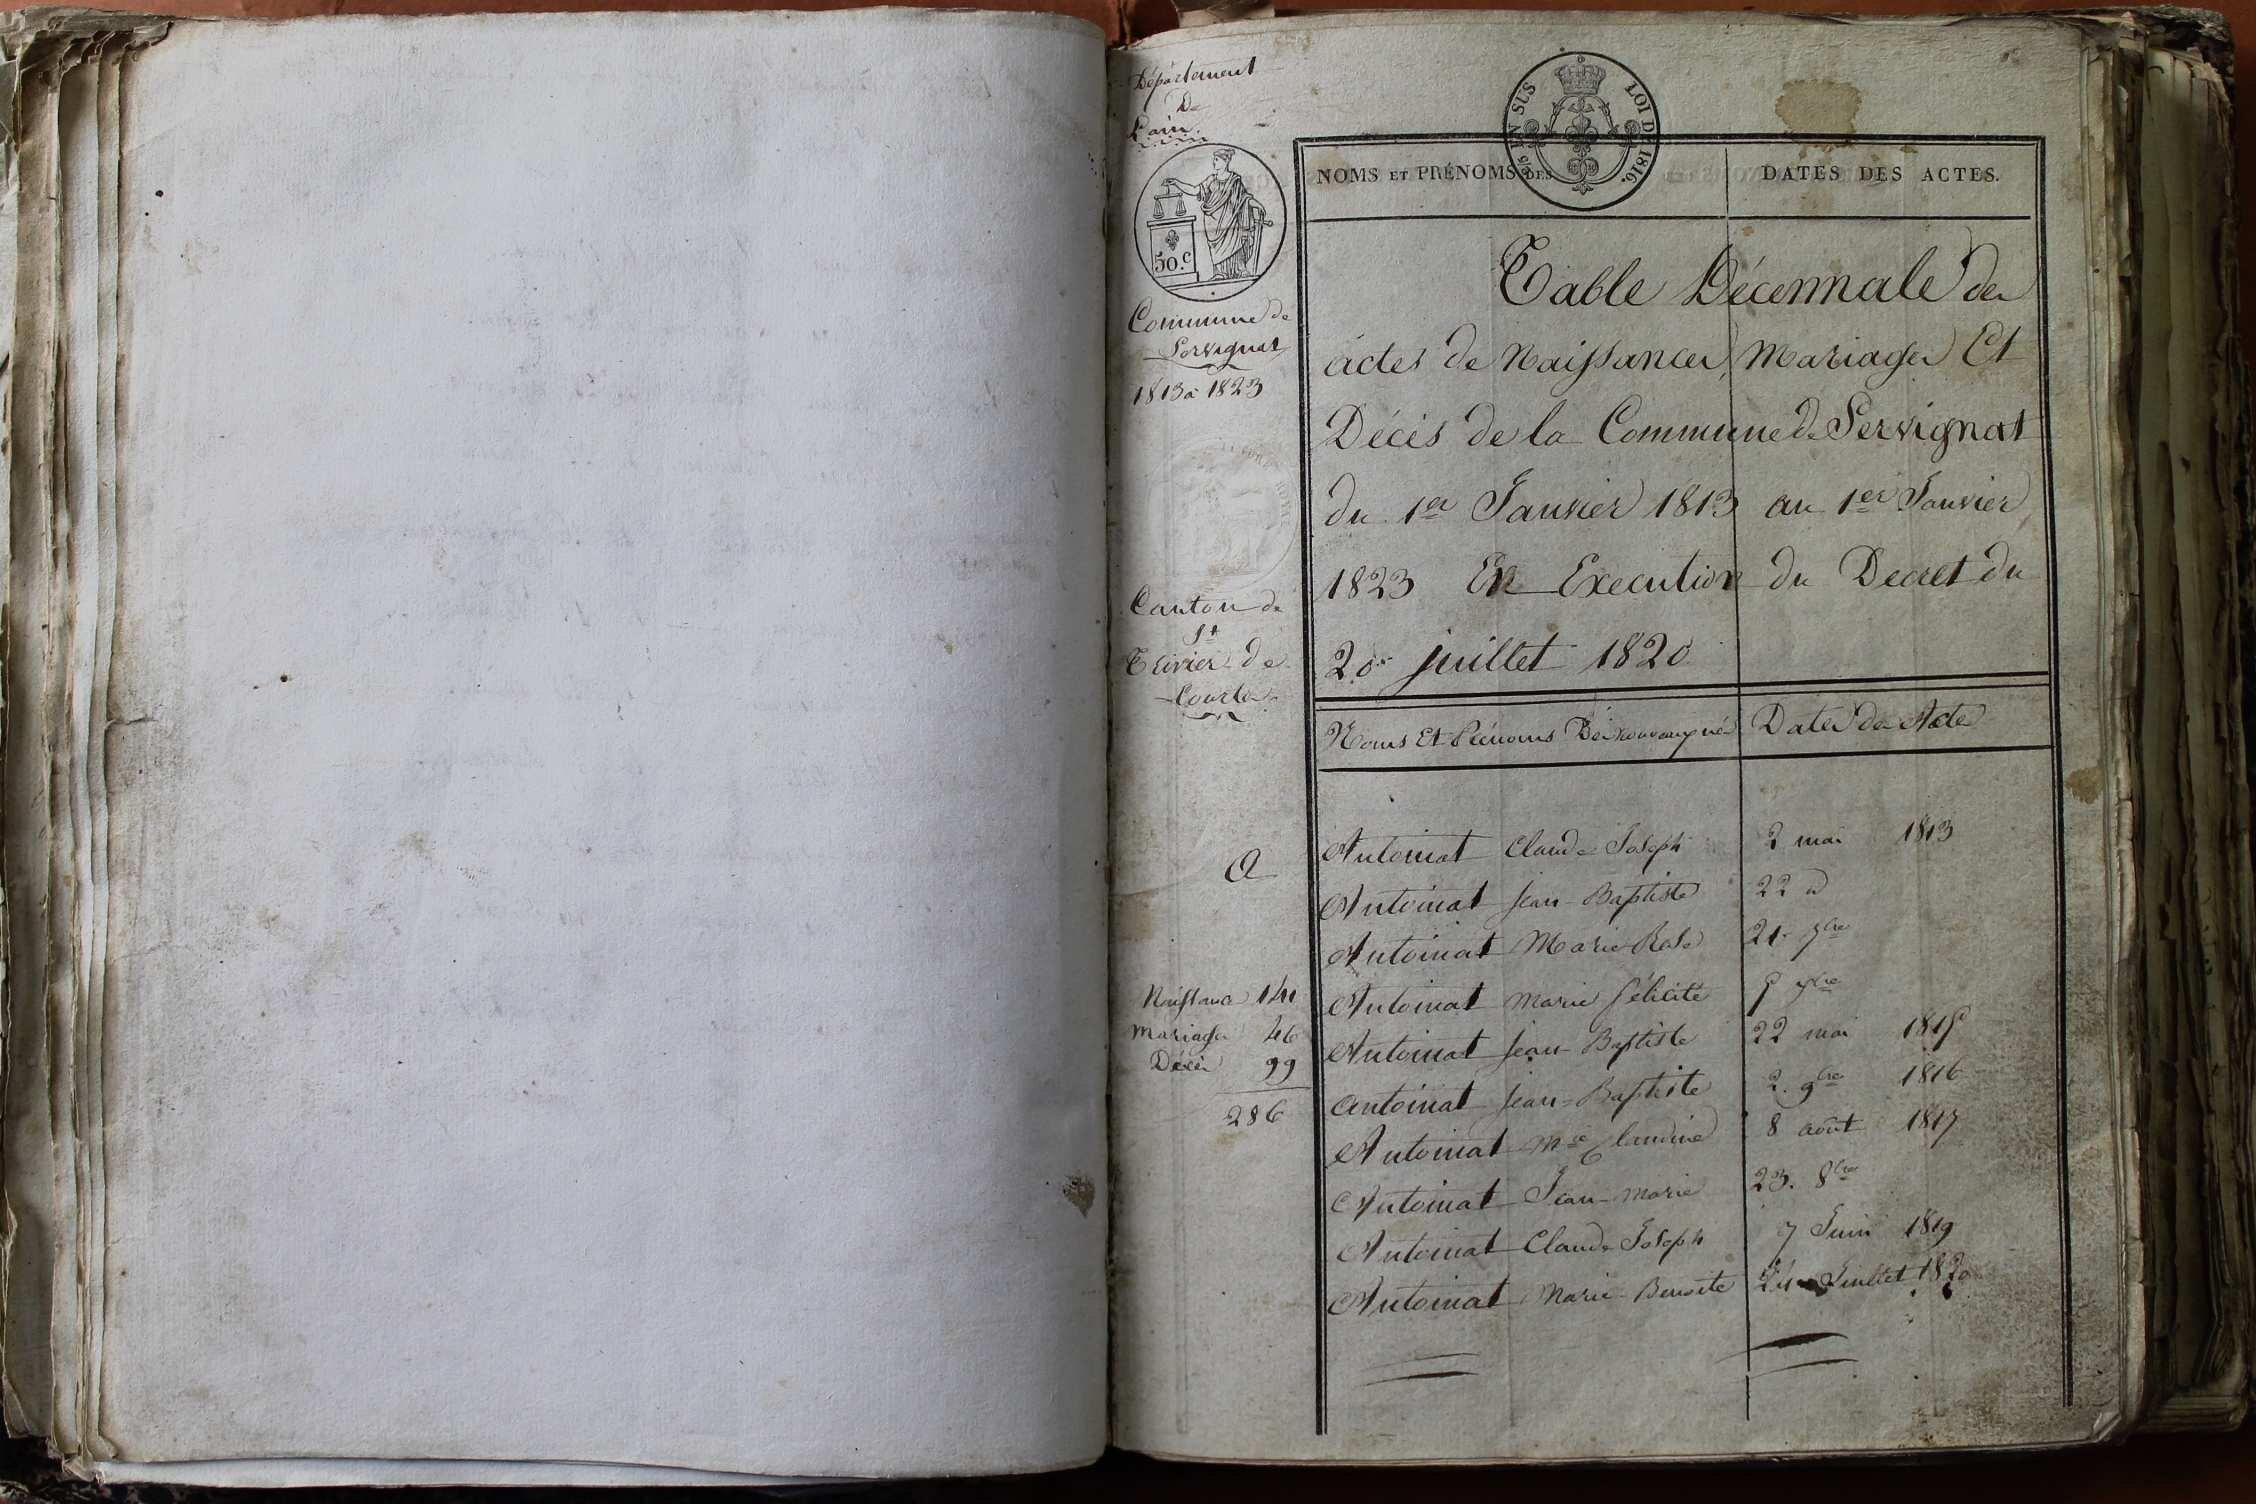 Département
De
Lain
50.c
Commune de
Servignat
1813 a 1823
Canton de
St
Trivier de
Courtes
A
Naissance 141
Mariages 46
Décès 99
286
EN SUS LOI DE 1816.
NOMS ET PRÉNOMS DES DATES DES ACTES.
Table Décennale des
actes de Naissances, Mariages Et
Décès de la Commune de Servignat
du 1er Janvier 1813 au 1er Janvier
1823 En Execution du Decret du
20 juillet 1820
Noms Et Prénoms Des Dates des Acte
Antoinat Claude Joseph 2 mai 1813
Antoinat Jean-Baptiste 22 d
Antoinat Marie Rose 21. 7bre
Antoinat Marie félicité 5 xbre
Antoinat Jean-Baptiste 22 mai 1815
Antoinat Jean-Baptiste 2. 9bre 1816
Antoinat Mie Claudine 8 août 1817
Antoinat Jean-Marie 23. 8bre
Antoinat Claude Joseph 7 Juin 1819
Antoinat Marie-Benoite 24 Juillet 1820